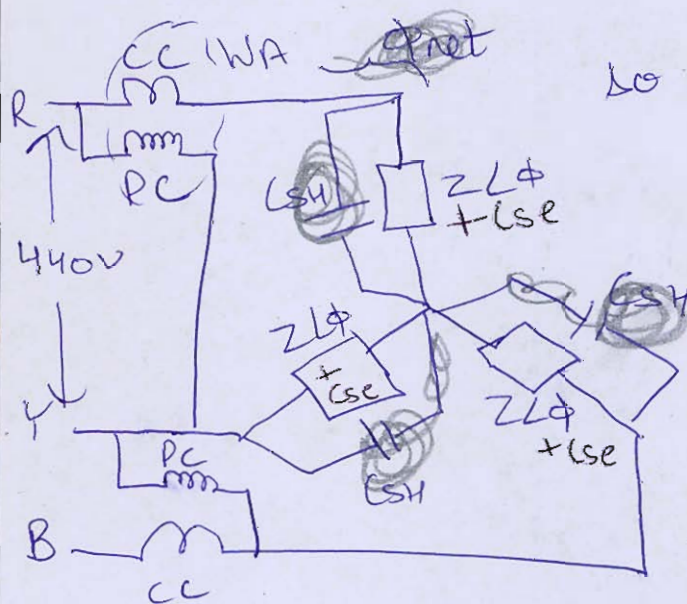 CC 1WA
Φnet
R
PC
CSH
ZLΦ
+Cse
440V
ZLΦ
+
Cse
CSH
ZLΦ
+Cse
Y
PC
CSH
B
CC